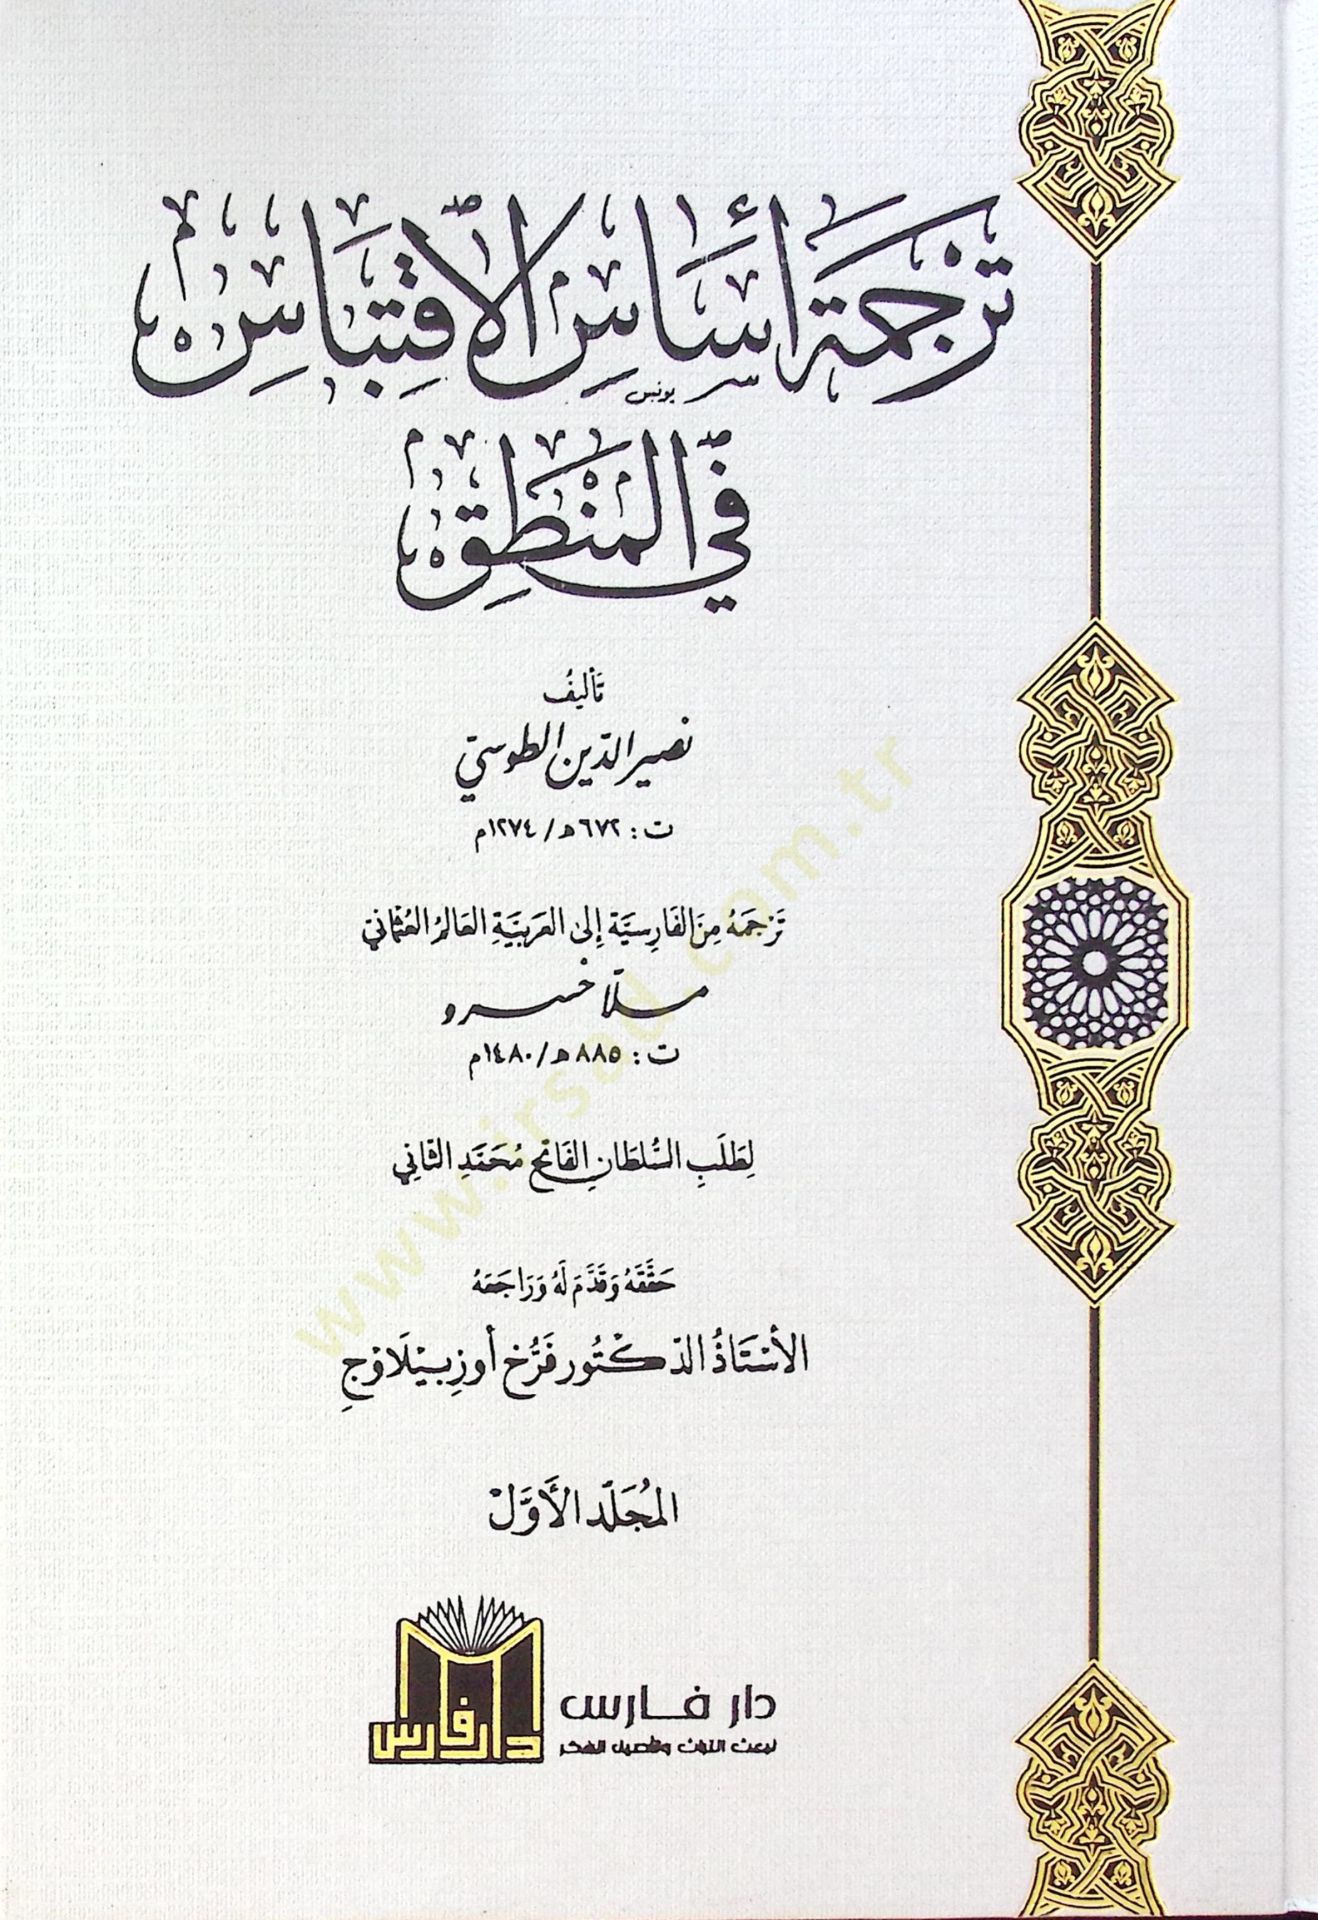 تَرْجَمَة أَسَاسِ الاقْتِبَاسِ
يونس
فِي المَنْطِقِ
تَأليفُ
نصير الدّين الطوسيّ
ت: ٦٧٢هـ/١٢٧٤م
تَرْجَمَهُ مِنَ الفَارِسيَّة إلى العَربيَّةِ العَالمُ العُثمانيّ
ملّا خُسرو
ت: ٨٨٥هـ/١٤٨٠م
لِطَلَبِ السُّلطانِ الفَاتحِ مُحَمَّدِ الثّاني
حَقَّقَهُ وَقَدَّمَ لَهُ وَرَاجَعَهُ
الأُسْتَاذُ الدّكْتُور فَرُّخ أوزبيْلَاوْجِ
المُجَلّد الأَوَّلْ
دار فارس
دار فارس
لبعث التراث وتأصيل الفكر
www.irsad.com.tr